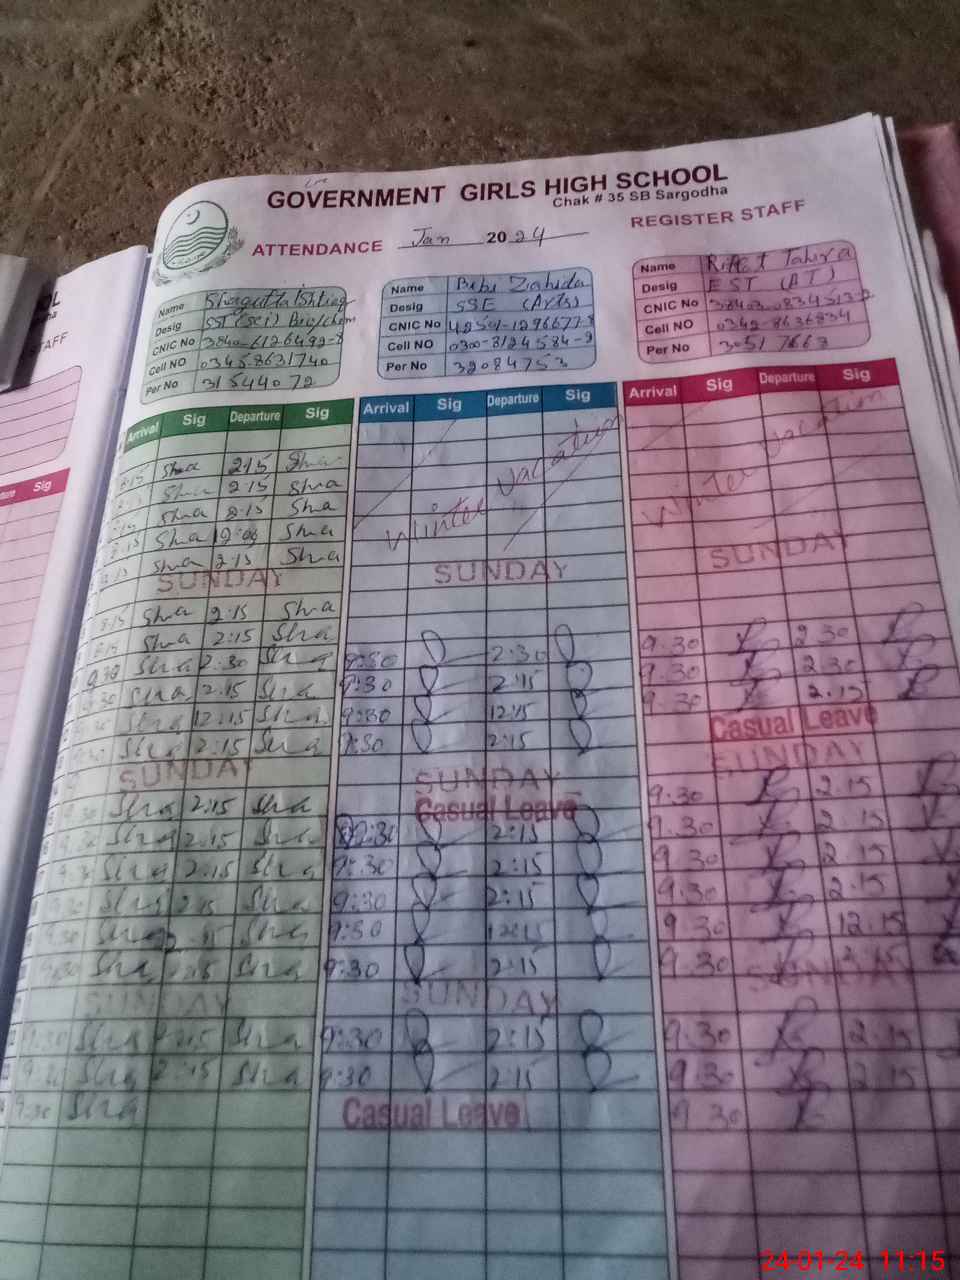 GOVERNMENT GIRLS HIGH SCHOOL
Chak # 35 SB Sargodha
ATTENDANCE Jan 2024 REGISTER STAFF
Name Shagufta Ishtiaq
Desig SST (Sci) Bio/chem
CNIC No 3840-6126492-8
Cell NO 03458631740
Per No 31544072
Name Bibi Zahida
Desig SSE (Arts)
CNIC No
Cell NO 0300-8124584-9
Per No 32084753
Name Riffat Tahira
Desig EST (AT)
CNIC No
Cell NO 0342-8636834
Per No 30517668
Arrival Sig Departure Sig
Arrival Sig Departure Sig
Arrival Sig Departure Sig
Sha 2:15 Sha
Sha 2:15 Sha
Sha 2:15 Sha
Sha Sha
Sha 2:15 Sha
SUNDAY
8:15 Sha 2:15 Sha
Sha 2:15 Sha
Sha 2:30 Sha
Sha 2:15 Sha
Sha 12:15 Sha
Sha 2:15 Sha
SUNDAY
9:30 Sha 2:15 Sha
Sha 2:15 Sha
Sha 2:15 Sha
Sha 2:15 Sha
9:30 Sha Sha
9:30 Sha 2:15 Sha
SUNDAY
9:30 Sha 2:15 Sha
Sha 2:15 Sha
9:30 Sha
Winter Vacation
SUNDAY
9:30 2:30
9:30 2:15
9:30 12:15
9:30 2:15
SUNDAY
Casual Leave
9:30 2:15
9:30 2:15
9:30 2:15
9:30 12:15
9:30 2:15
SUNDAY
9:30 2:15
9:30 2:15
Casual Leave
Winter Vacation
SUNDAY
9.30 2.30
9.30 2.30
9.30 2.15
Casual Leave
SUNDAY
9.30 2.15
9.30 2.15
9.30 2.15
9.30 2.15
9.30 12.15
9.30 2.15
SUNDAY
9.30 2.15
9.30 2.15
9.30
STAFF
Sig
24-01-24 11:15